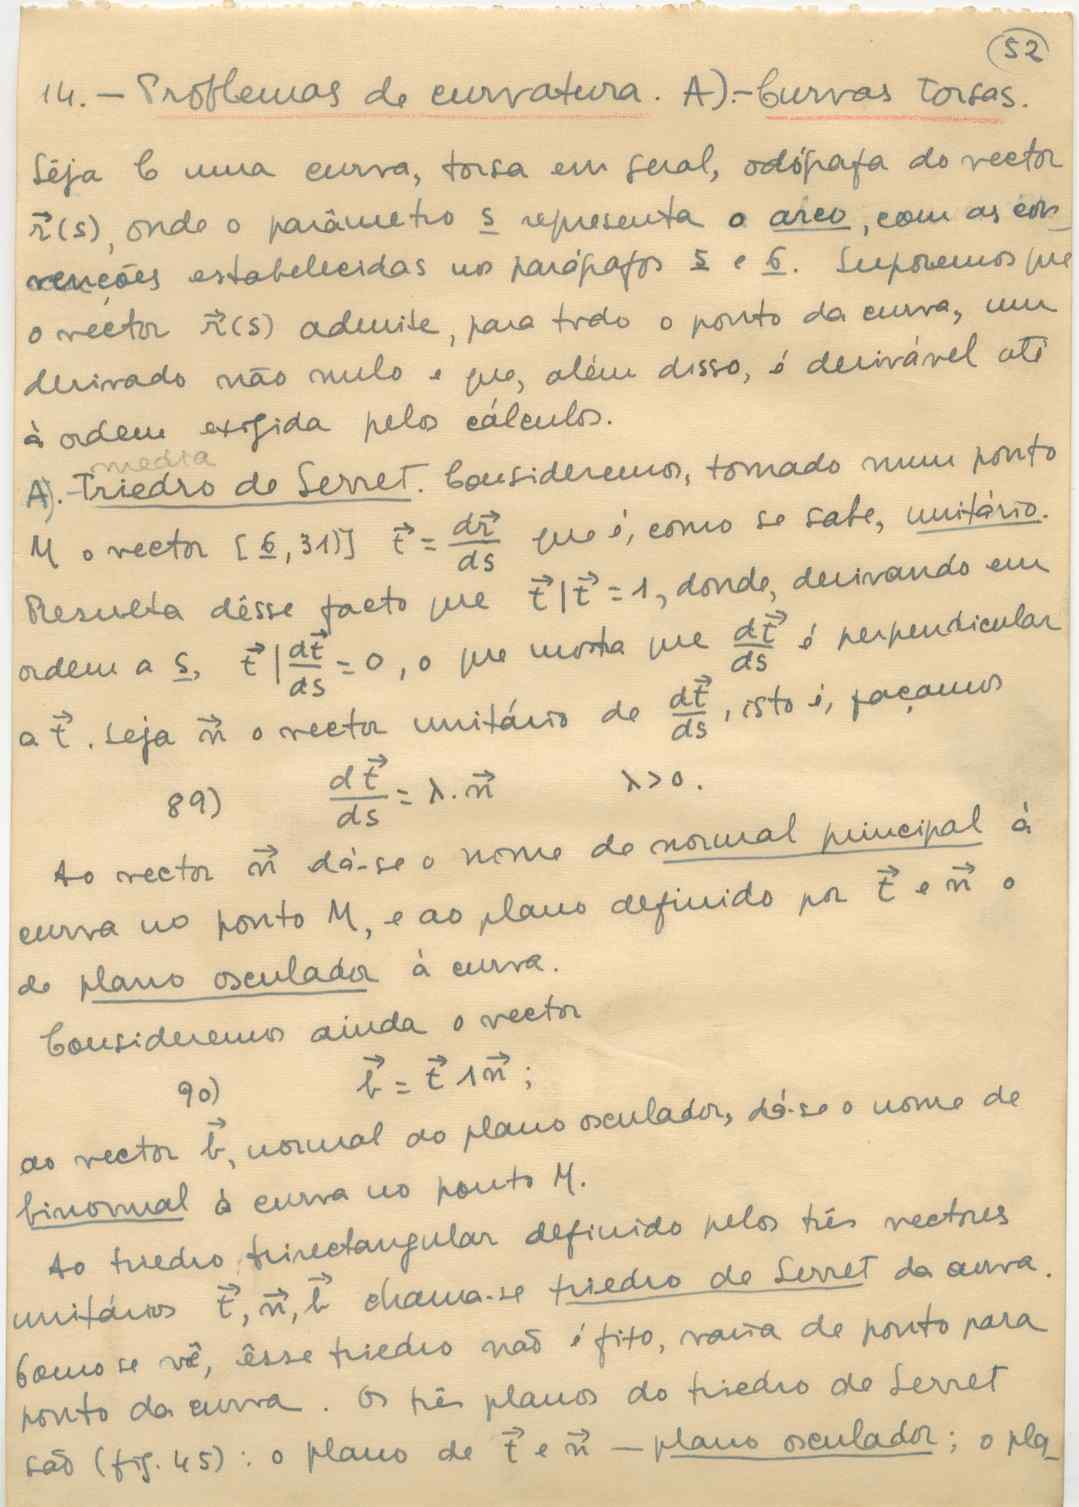 52
14. — Problemas de curvatura. A).- Curvas Torsas.
Seja C uma curva, torsa em geral, odógrafa do vector
r⃗(s), onde o parâmetro s representa o arco, com as con-
venções estabelecidas nos parágrafos 5 e 6. Suporemos que
o vector r⃗(s) admite, para todo o ponto da curva, um
derivado não nulo e que, além disso, é derivável até
à ordem exigida pelos cálculos.
media
A).- Triedro de Serret. Consideremos, tomado num ponto
M o vector [6, 31)] t⃗ = dr⃗/ds que é, como se sabe, unitário.
Resulta dêsse facto que t⃗|t⃗ = 1, donde, derivando em
ordem a s, t⃗|dt⃗/ds = 0, o que mostra que dt⃗/ds é perpendicular
a t⃗. Seja n⃗ o vector unitário de dt⃗/ds, isto é, façamos
89) dt⃗/ds = λ.n⃗ λ>0.
Ao vector n⃗ dá-se o nome de normal principal à
curva no ponto M, e ao plano definido por t⃗ e n⃗ o
de plano osculador à curva.
Consideremos ainda o vector
90) b⃗ = t⃗ ∧ n⃗;
ao vector b⃗, normal ao plano osculador, dá-se o nome de
binormal à curva no ponto M.
Ao triedro trirectangular definido pelos três vectores
unitários t⃗, n⃗, b⃗ chama-se triedro de Serret da curva.
Como se vê, êsse triedro não é fixo, varia de ponto para
ponto da curva. Os três planos do triedro de Serret
são (fig. 45): o plano de t⃗ e n⃗ — plano osculador; o pla-